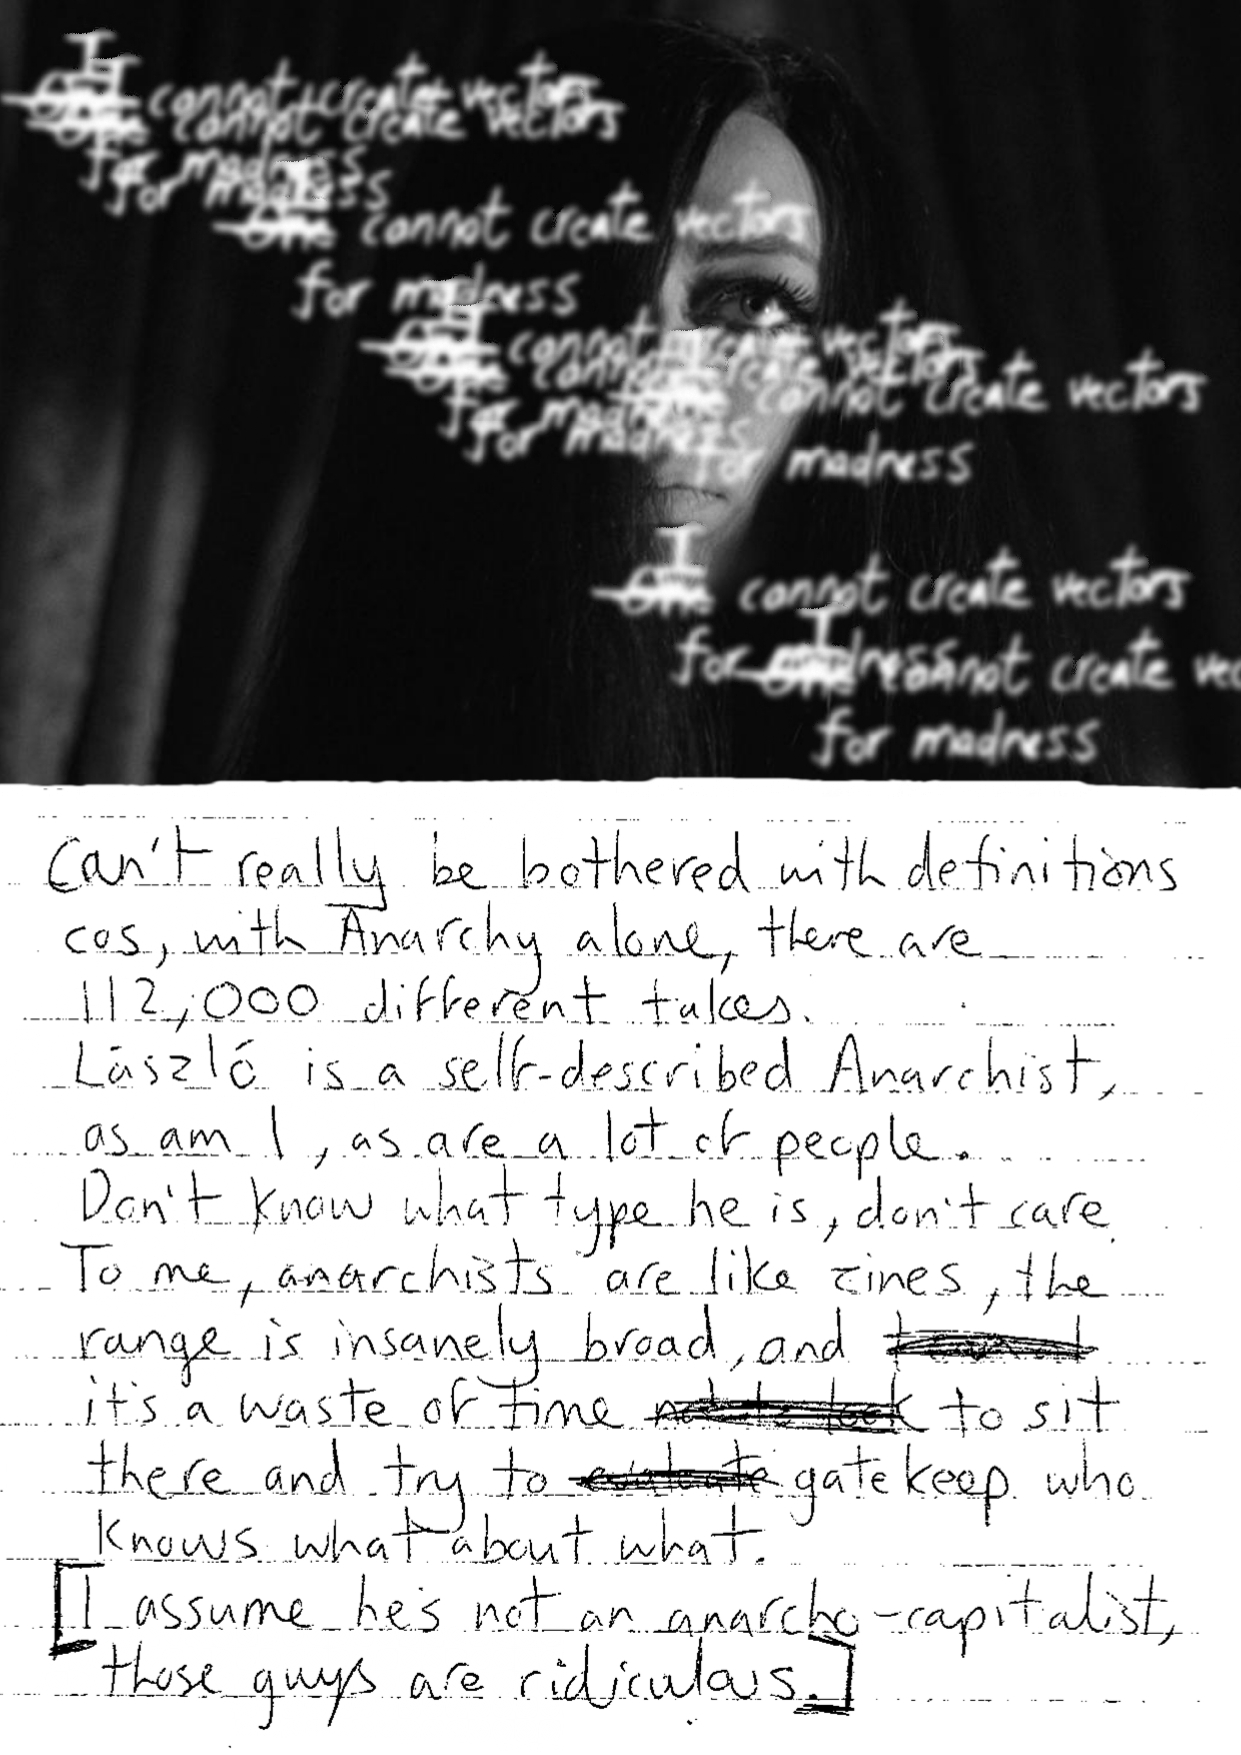 I
One cannot create vectors
I
One cannot create vectors
for madness
for madness
One cannot create vectors
for madness
I
One cannot create vectors
One cannot create vectors
One cannot create vectors
for madness
for madness
for madness
I
One cannot create vectors
for madness
I
One cannot create vec
for madness
Can't really be bothered with definitions
cos, with Anarchy alone, there are
112,000 different takes.
László is a self-described Anarchist,
as am I, as are a lot of people.
Don't know what type he is, don't care.
To me, anarchists are like zines, the
range is insanely broad, and
it's a waste of time to sit
there and try to evaluate gatekeep who
knows what about what.
[I assume he's not an anarcho-capitalist,
those guys are ridiculous.]